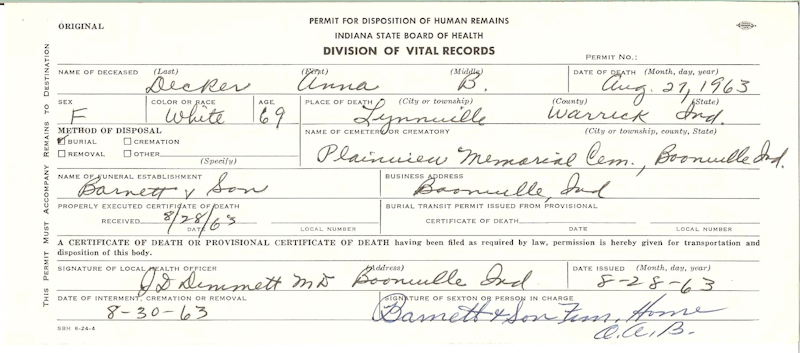 ORIGINAL
PERMIT FOR DISPOSITION OF HUMAN REMAINS
INDIANA STATE BOARD OF HEALTH
DIVISION OF VITAL RECORDS
PERMIT NO.:
THIS PERMIT MUST ACCOMPANY REMAINS TO DESTINATION
NAME OF DECEASED (Last) (First) (Middle) DATE OF DEATH (Month, day, year)
Decker Anna B. Aug. 27, 1963
SEX COLOR OR RACE AGE PLACE OF DEATH (City or township) (County) (State)
F White 69 Lynnville Warrick Ind.
METHOD OF DISPOSAL NAME OF CEMETERY OR CREMATORY (City or township, county, State)
BURIAL CREMATION
REMOVAL OTHER
(Specify)
Plainview Memorial Cem., Boonville Ind.
NAME OF FUNERAL ESTABLISHMENT BUSINESS ADDRESS
Barnett & Son Boonville, Ind
PROPERLY EXECUTED CERTIFICATE OF DEATH BURIAL TRANSIT PERMIT ISSUED FROM PROVISIONAL
RECEIVED 8/28/63 CERTIFICATE OF DEATH
DATE LOCAL NUMBER DATE LOCAL NUMBER
A CERTIFICATE OF DEATH OR PROVISIONAL CERTIFICATE OF DEATH having been filed as required by law, permission is hereby given for transportation and
disposition of this body.
SIGNATURE OF LOCAL HEALTH OFFICER (Address) DATE ISSUED (Month, day, year)
J D Dimmett MD Boonville Ind 8-28-63
DATE OF INTERMENT, CREMATION OR REMOVAL SIGNATURE OF SEXTON OR PERSON IN CHARGE
8-30-63 Barnett & Son Fun. Home
A.A.B.
SBH 6-24-4